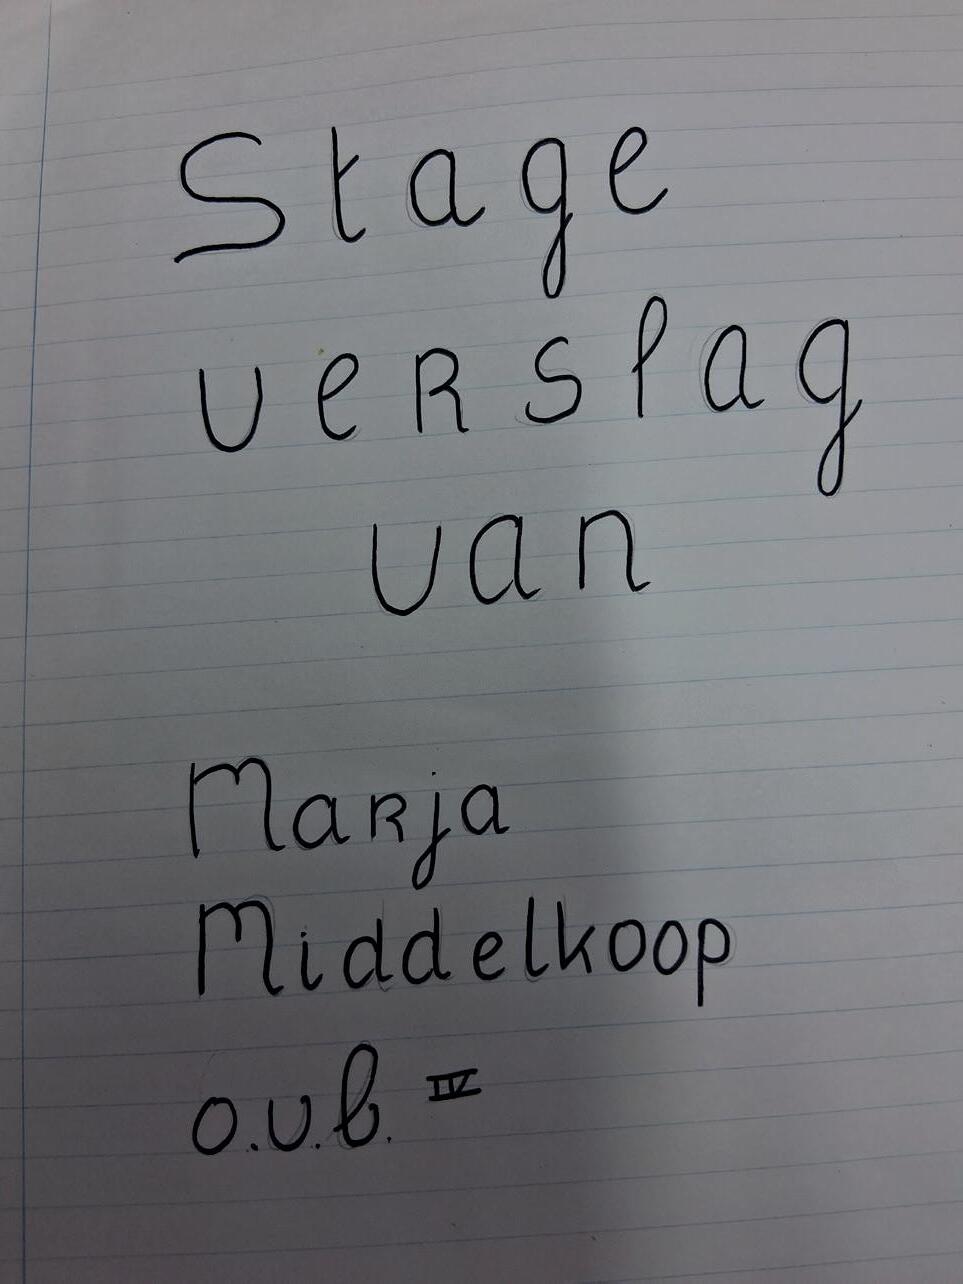 Stage
verslag
van
Marja
Middelkoop
o.v.b. IV